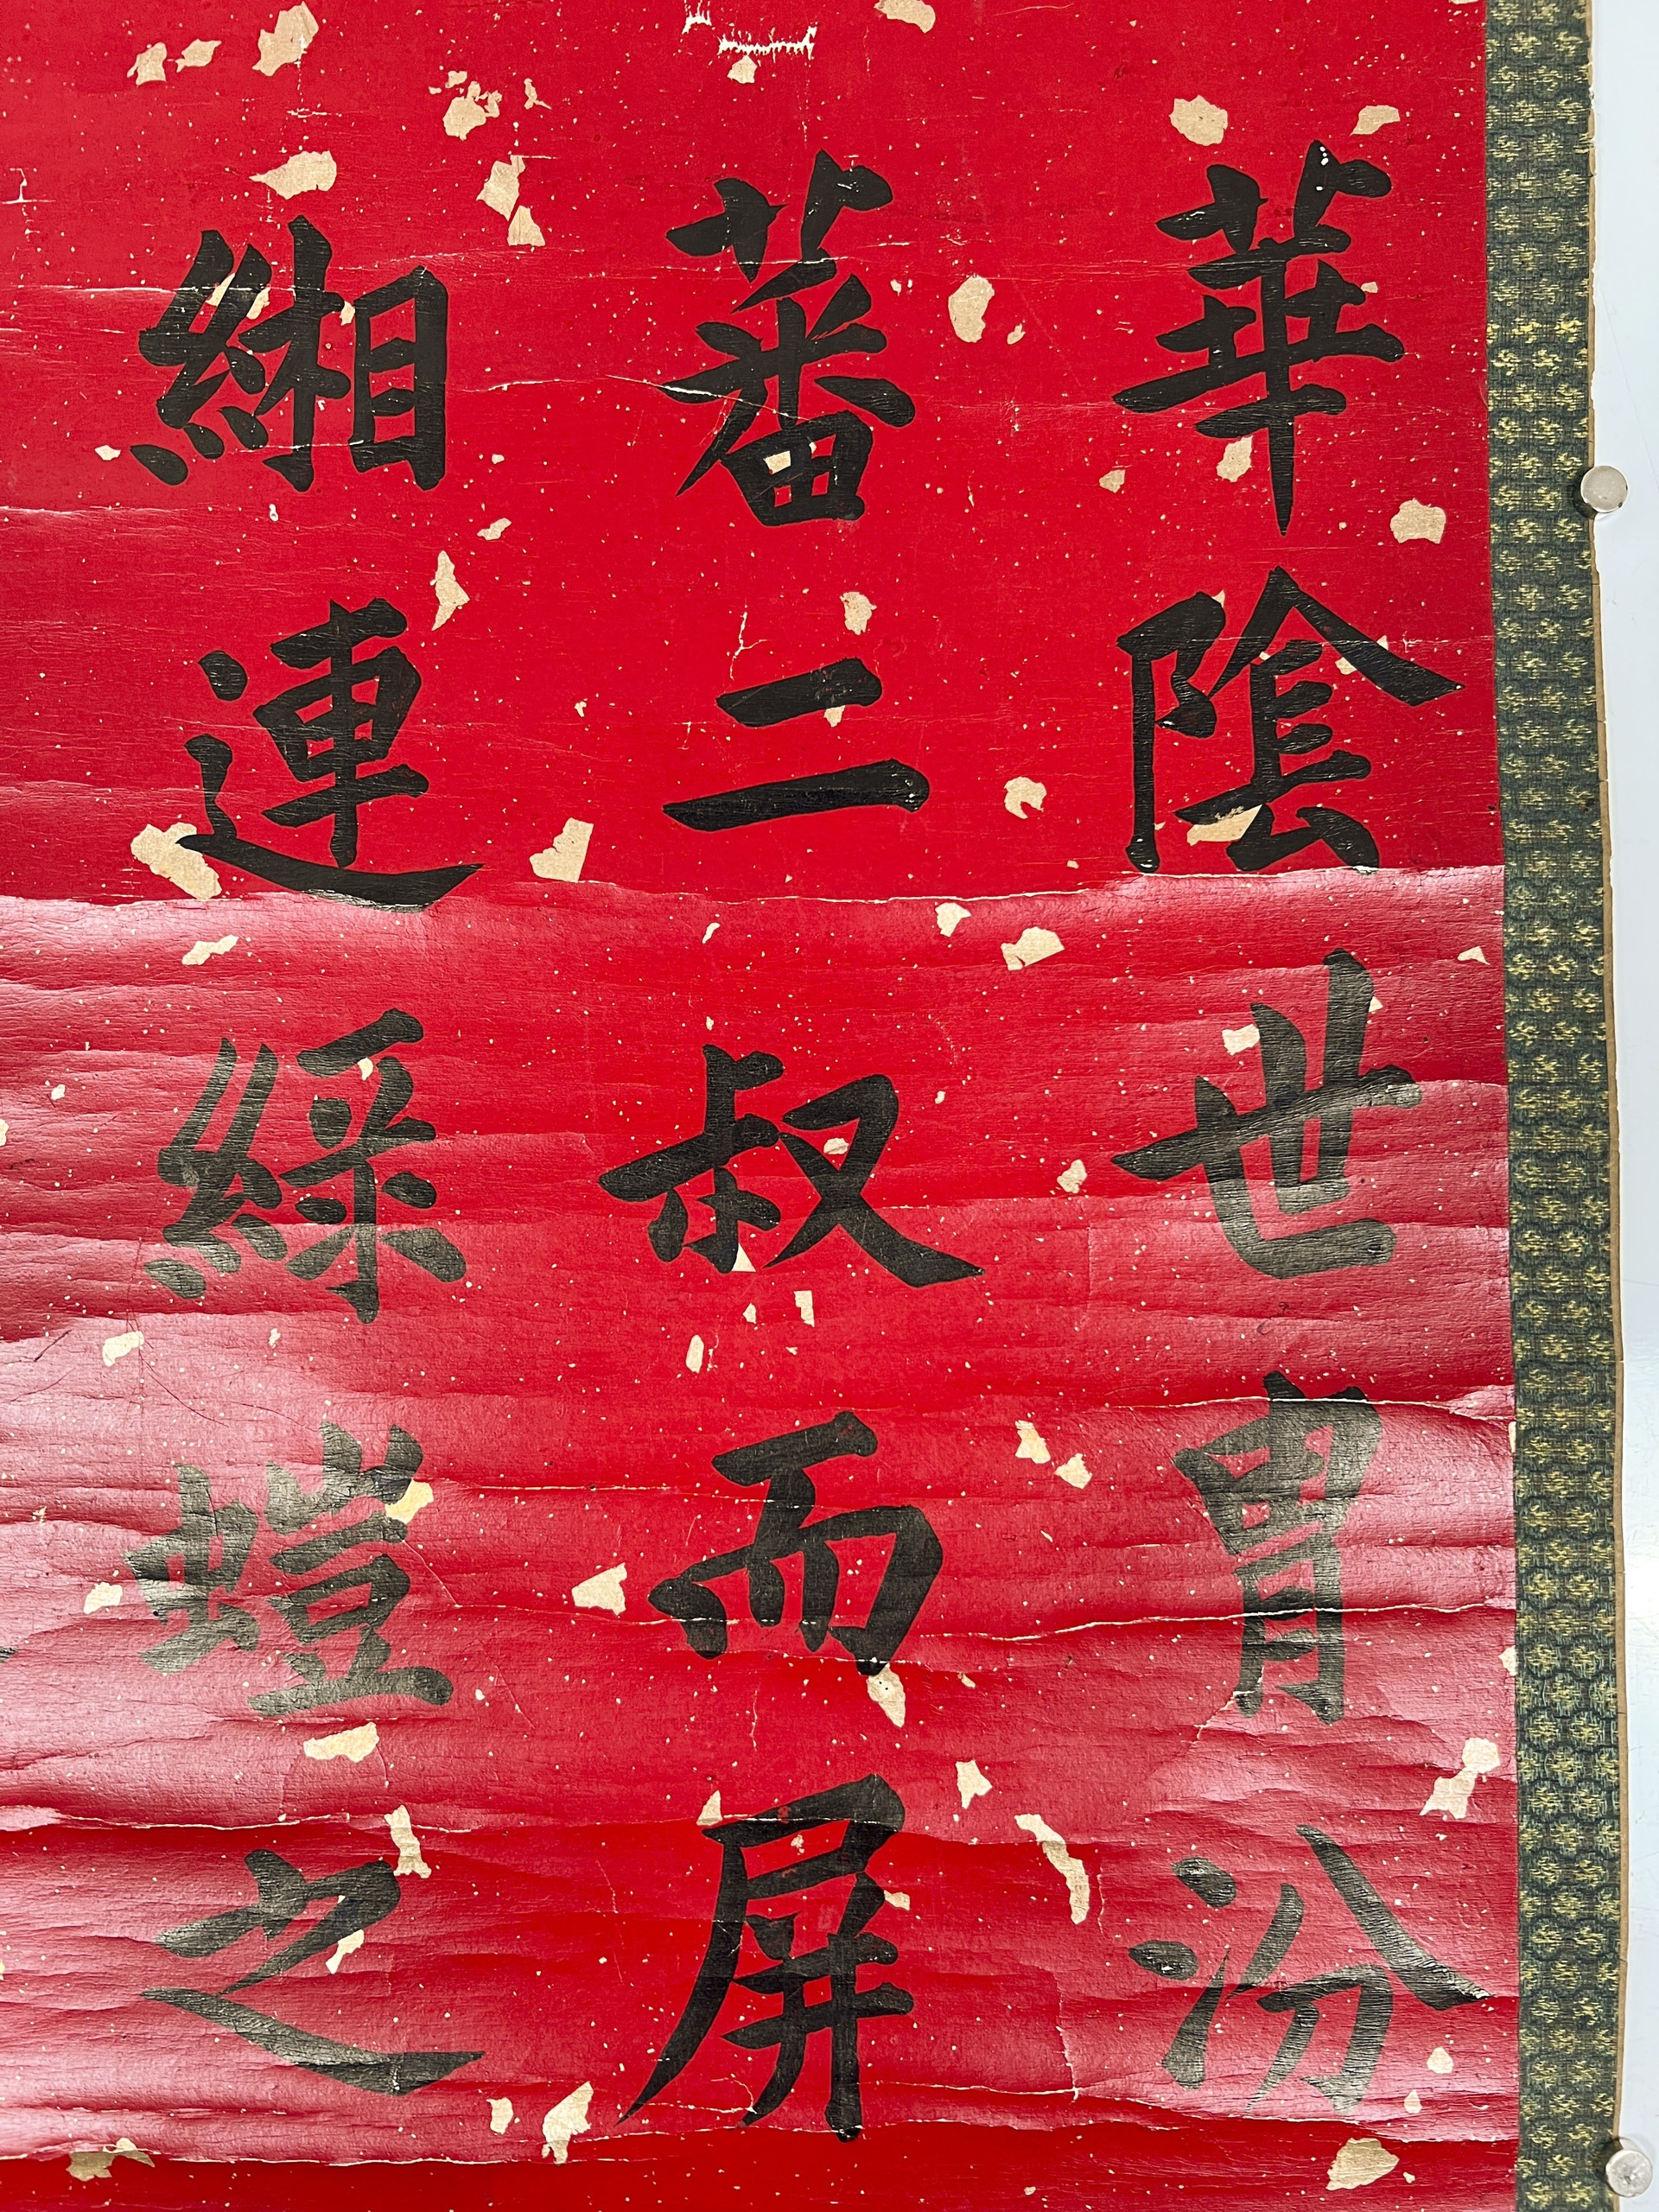 華陰世胄汾
蕃二叔而屏
緗連綵螘之